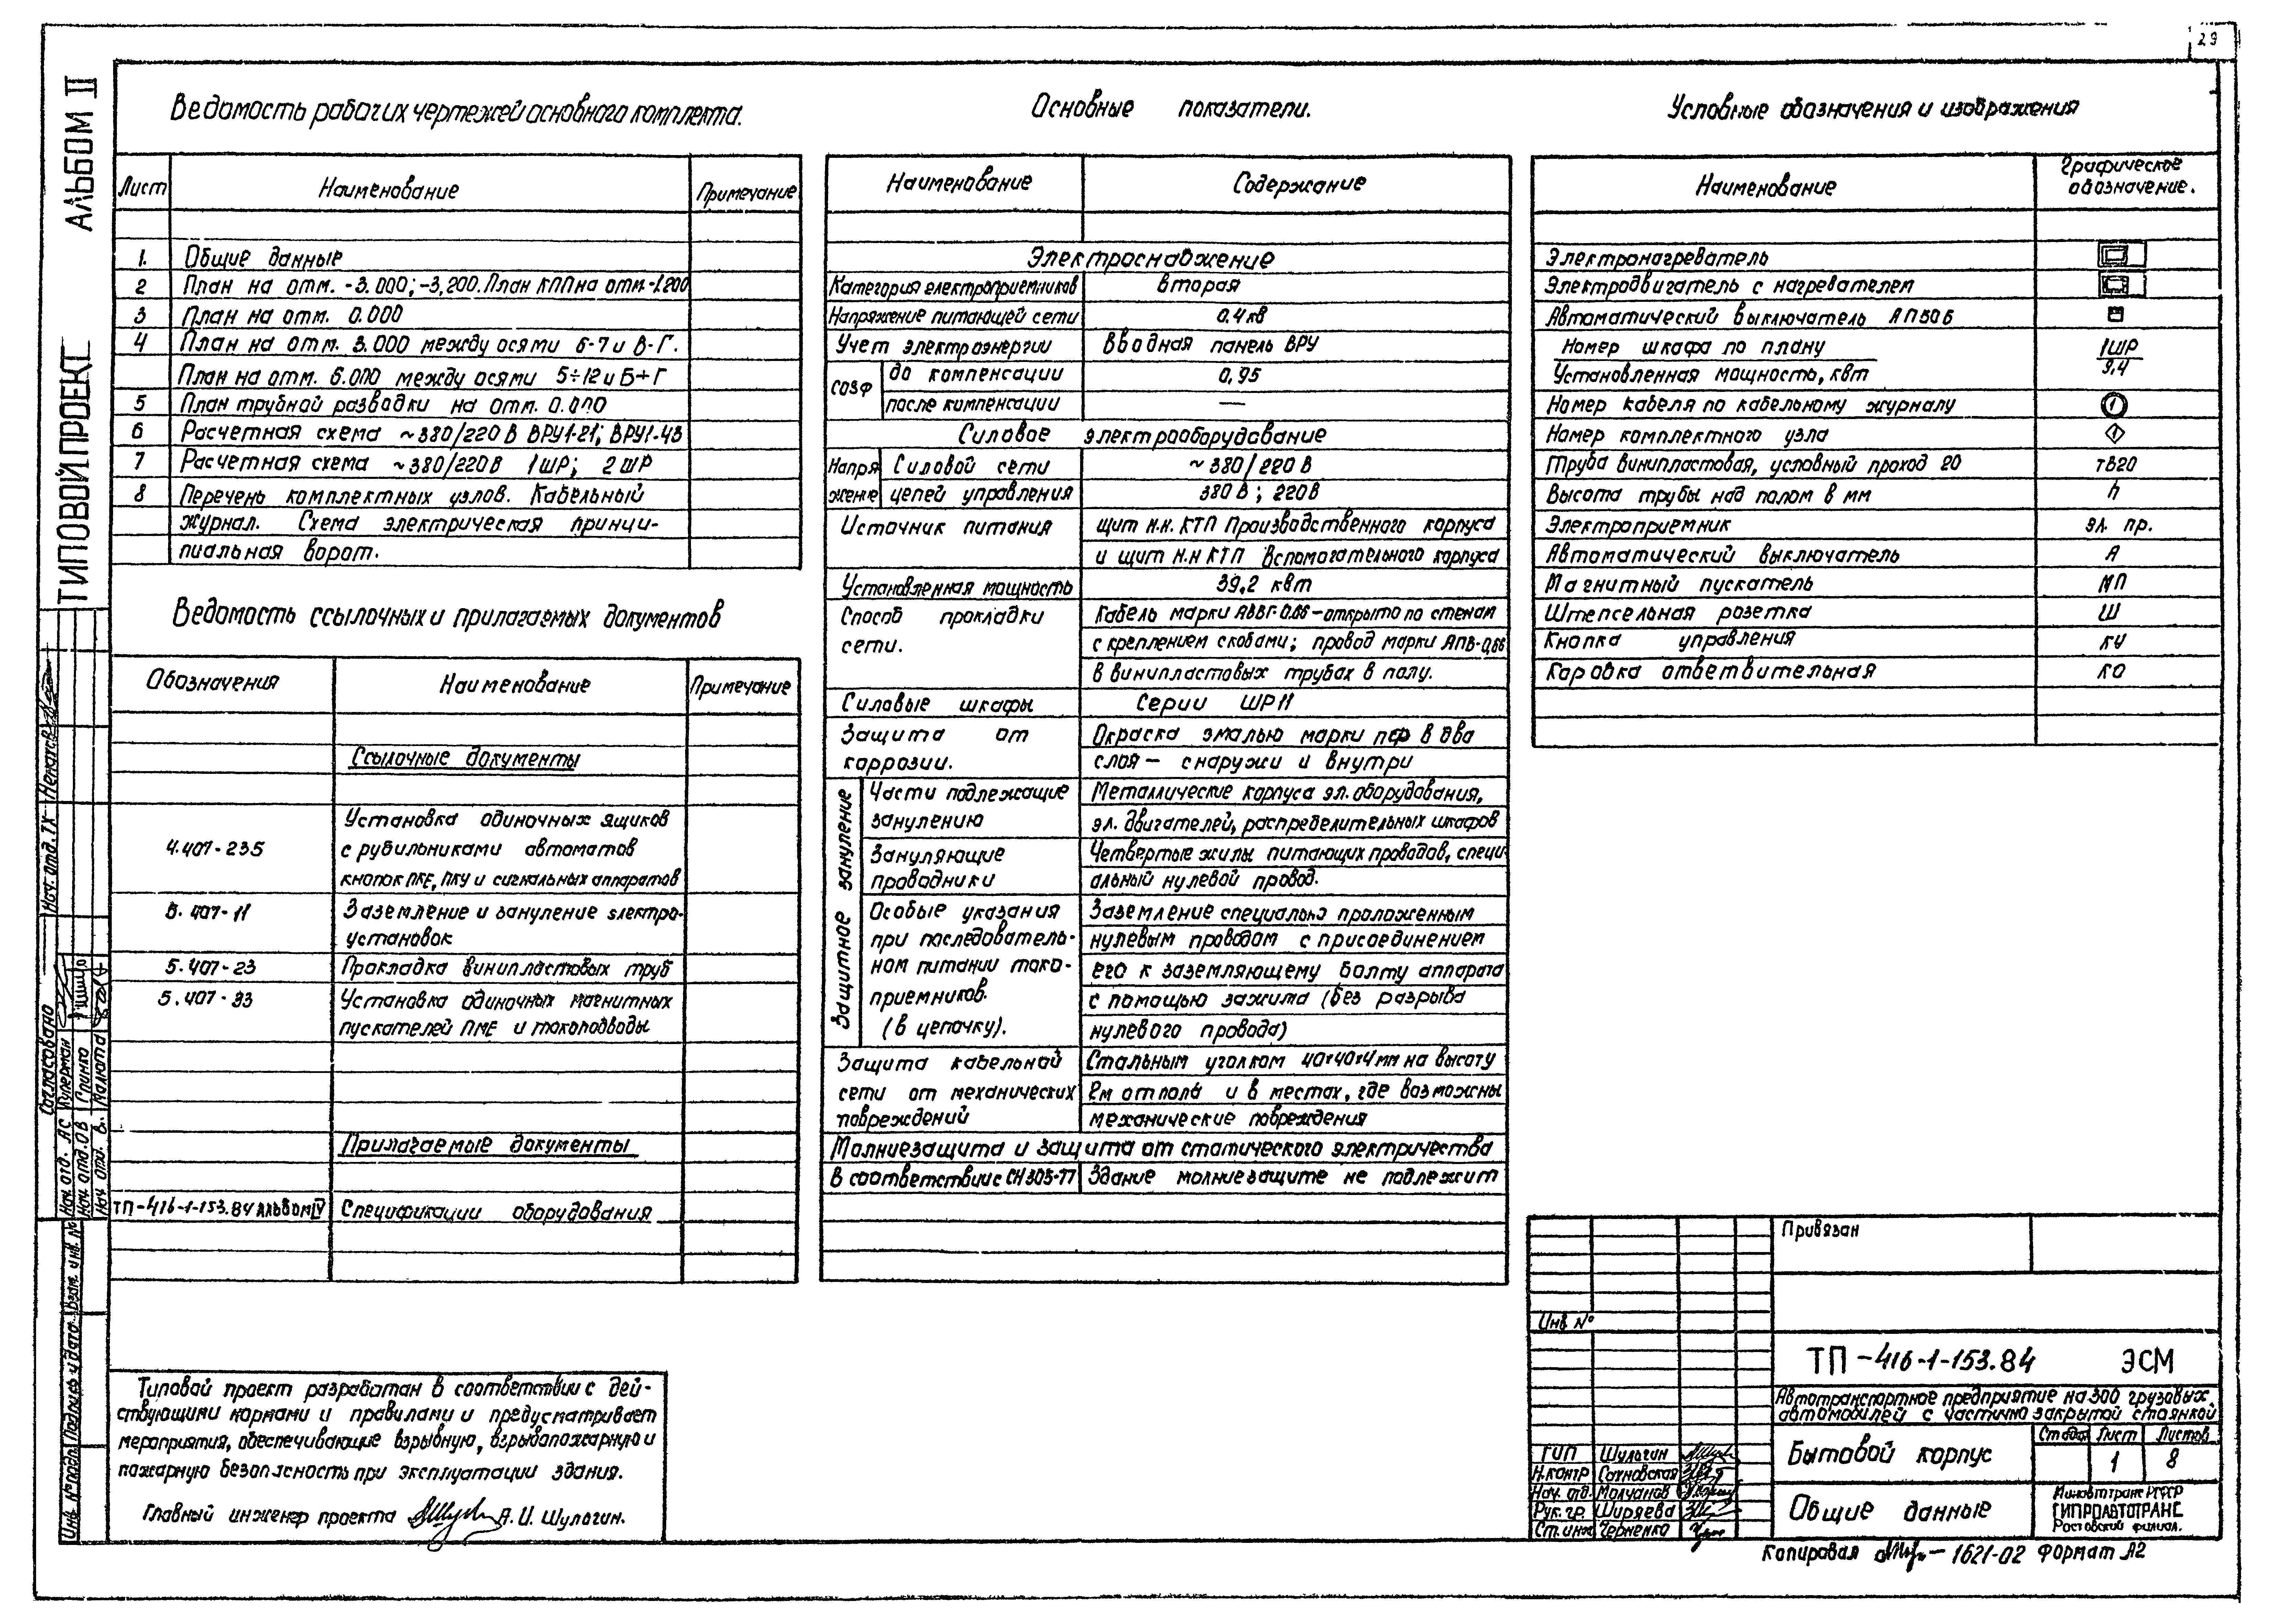 29
АЛЬБОМ II
ТИПОВОЙ ПРОЕКТ
Ведомость рабочих чертежей основного комплекта.
Лист Наименование Примечание
1. Общие данные
2 План на отм. -3.000; -3,200. План КПП на отм. -1.200
3 План на отм. 0.000
4 План на отм. 3.000 между осями 6-7 и В-Г.
План на отм. 6.000 между осями 5÷12 и Б÷Г
5 План трубной разводки на отм. 0.000
6 Расчетная схема ~380/220 В ВРУ1-21; ВРУ1-43
7 Расчетная схема ~380/220В 1ШР; 2ШР
8 Перечень комплектных узлов. Кабельный
журнал. Схема электрическая принци-
пиальная ворот.
Ведомость ссылочных и прилагаемых документов
Обозначения Наименование Примечание
Ссылочные документы
4.407-235 Установка одиночных ящиков
с рубильниками автоматов
кнопок ПКЕ, ПКУ и сигнальных аппаратов
5.407-11 Заземление и зануление электро-
установок
5.407-23 Прокладка винипластовых труб
5.407-33 Установка одиночных магнитных
пускателей ПМЕ и токоподводы
Прилагаемые документы
ТП-416-1-153.84 АЛЬБОМ IV Спецификации оборудования
Типовой проект разработан в соответствии с дей-
ствующими нормами и правилами и предусматривает
мероприятия, обеспечивающие взрывную, взрывопожарную и
пожарную безопасность при эксплуатации здания.
Главный инженер проекта А. И. Шулагин.
Основные показатели.
Наименование Содержание
Электроснабжение
Категория электроприемников вторая
Напряжение питающей сети 0.4 кв
Учет электроэнергии Вводная панель ВРУ
cosφ до компенсации 0,95
после компенсации —
Силовое электрооборудование
Напря Силовой сети ~380/220 В
жение цепей управления 380 В; 220В
Источник питания щит н.н. КТП Производственного корпуса
и щит н.н КТП Вспомогательного корпуса
Установленная мощность 39,2 квт
Способ прокладки Кабель марки АВВГ-0.66-открыто по стенам
сети. с креплением скобами; провод марки АПВ-0,66
в винипластовых трубах в полу.
Силовые шкафы Серии ШР11
Защита от Окраска эмалью марки ПФ в два
коррозии. слоя — снаружи и внутри
Защитное зануление
Части подлежащие Металлические корпуса эл. оборудования,
занулению эл. двигателей, распределительных шкафов
Зануляющие Четвертые жилы питающих проводов, специ-
проводники альный нулевой провод.
Особые указания Заземление специально проложенным
при последователь- нулевым проводом с присоединением
ном питании токо- его к заземляющему болту аппарата
приемников. с помощью зажима (без разрыва
(в цепочку). нулевого провода)
Защита кабельной Стальным уголком 40×40×4мм на высоту
сети от механических 2м от пола и в местах, где возможны
повреждений механические повреждения
Молниезащита и защита от статического электричества
В соответствии с СН 305-77 Здание молниезащите не подлежит
Условные обозначения и изображения
Наименование Графическое
обозначение.
Электронагреватель
Электродвигатель с нагревателем
Автоматический выключатель АП50Б
Номер шкафа по плану 1ШР
Установленная мощность, квт 9,4
Номер кабеля по кабельному журналу 1
Номер комплектного узла 1
Труба винипластовая, условный проход 20 тв20
Высота трубы над полом в мм h
Электроприемник эл. пр.
Автоматический выключатель А
Магнитный пускатель МП
Штепсельная розетка Ш
Кнопка управления КУ
Коробка ответвительная КО
Привязан
Инв №
ТП-416-1-153.84 ЭСМ
Автотранспортное предприятие на 300 грузовых
автомобилей с частично закрытой стоянкой
Бытовой корпус
Стадия Лист Листов
1 8
Общие данные
Минавтотранс РСФСР
ГИПРОАВТОТРАНС
Ростовский филиал.
ГИП Шулагин
Н.контр Сахновская
Нач. отд. Молчанов
Рук. гр. Ширяева
Ст. инж Черненко
Копировал — 1621-02 Формат А2
Согласовано
Нач. отд. ТХ
Нач отд. АС Куперман
Нач отд. ОВ Глинко
Нач отд. В. Малюта
Инв. № подл. Подпись и дата Взам. инв. №